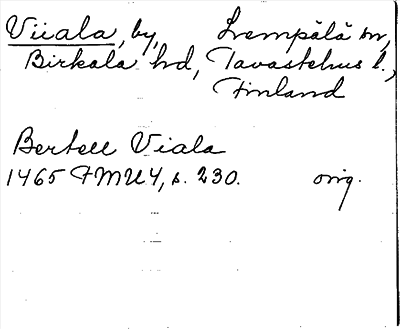 Viiala, by, Lempälä sn,
Birkala hd, Tavastehus l.,
Finland
Bertell Viala
1465 FMU4, s. 230. orig.